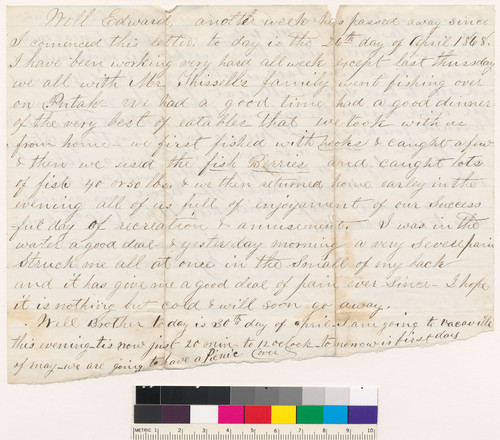 Well Edward, another week has passed away since
I comenced this letter. to day is the 26th day of April 1868.
I have been working very hard all week except last thursday
we all with Mr. Thissell's family went fishing over
on Putah we had a good time had a good dinner
of the very best of eatables that we took with us
from home - we first fished with hooks & caught a few
& then we used the fish Berries and caught lots
of fish 40 or 50 lbs. & we then returned home earley in the
evening all of us full of enjoyment of our Success
-ful day of recreation & amusement. I was in the
water a good deal & yesterday morning a very Severe pain
Struck me all at once in the Small of my back
and it has give me a good deal of pain ever Since - I hope
it is nothing but cold & will soon go away.
Well Brother to day is 30th day of April I am going to vacaville
this evening - tis now just 20 min to 12 oclock - to morrow is first day
of may - we are going to have a Picnic
METRIC 1 2 3 4 5 6 7 8 9 10